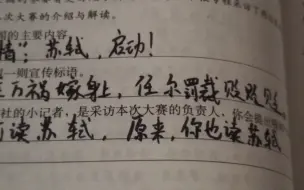 次大赛的介绍与解读。
的主要内容
情”：苏轼，启动！
一则宣传标语。
万祸嫁身，任尔戳败败
社的小记者，是采访本次大赛的负责人，你会提出
读苏轼，原来，你也读苏轼